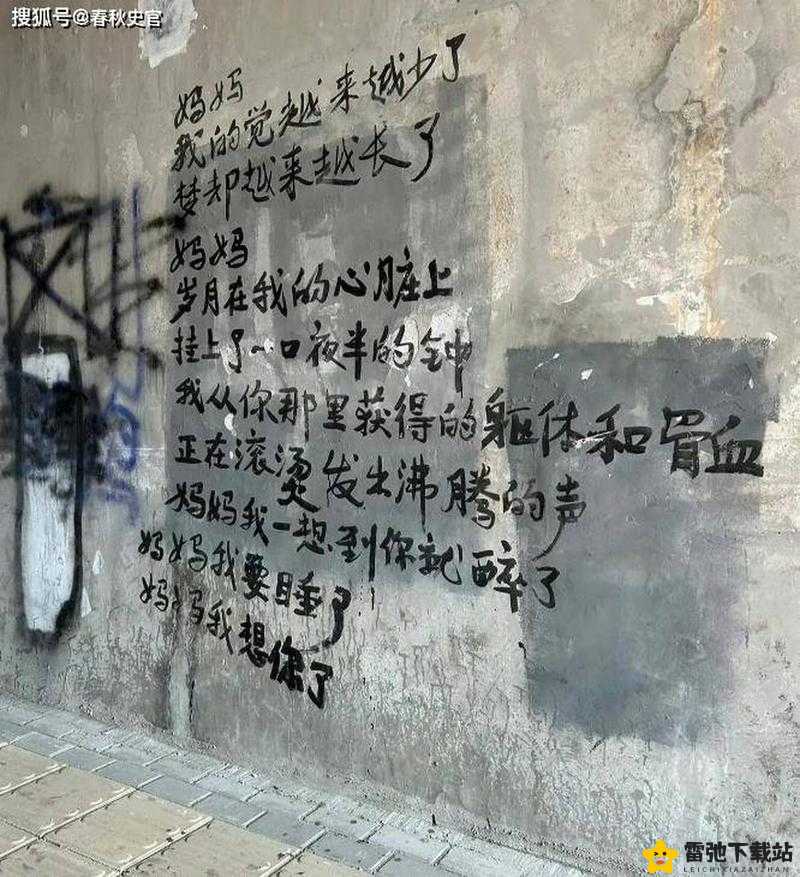 搜狐号@春秋史官
妈妈
我的觉越来越少了
梦却越来越长了
妈妈
岁月在我的心脏上
挂上了一口夜半的钟
我从你那里获得的躯体和骨血
正在滚烫发出沸腾的声
妈妈我一想到你就醉了
妈妈我要睡了
妈妈我想你了
雷弛下载站
LEICHIXIAZAIZHAN